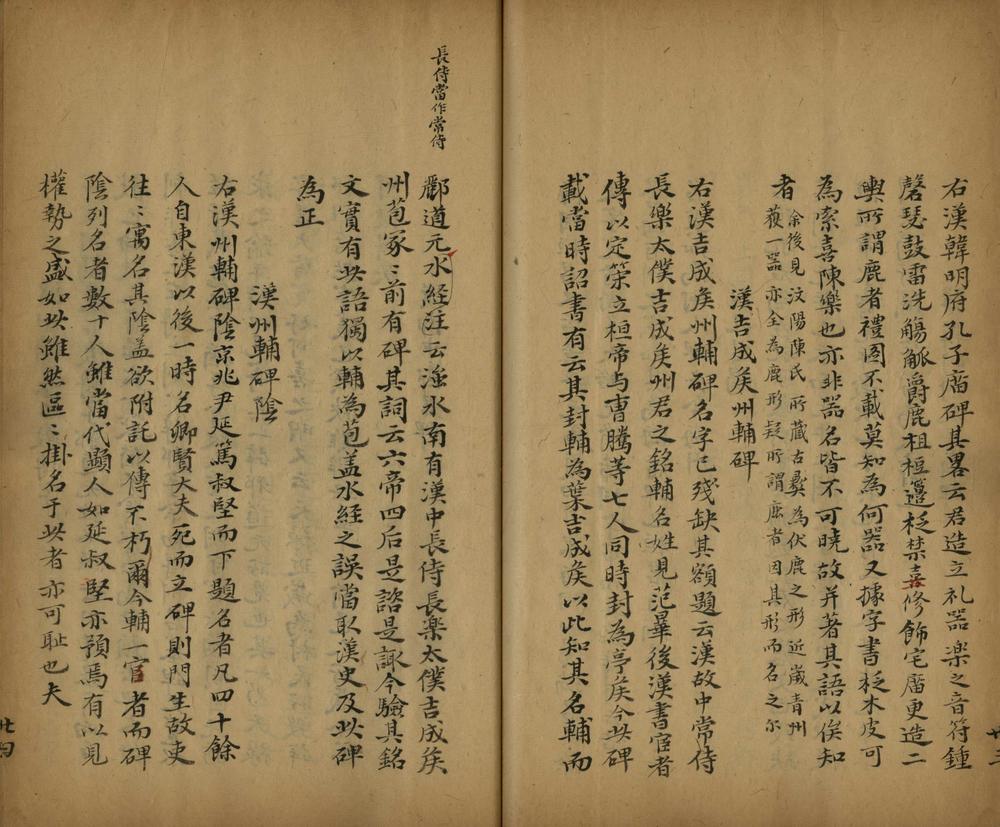 右漢韓明府孔子庿碑其畧云君造立礼器楽之音符鍾
磬瑟鼓雷洗觴觚爵鹿柤梪籩柉禁喜修飾宅庿更造二
輿所謂鹿者禮图不載莫知為何器又㨿字書柉木皮可
為索喜陳樂也亦非器名皆不可曉故并著其語以俟知
者
余後見汶陽陳氏所藏古彝為伏鹿之形近歲青州
獲一器亦全為鹿形疑所謂鹿者因其形而名之尔
漢吉成矦州輔碑
右漢吉成矦州輔碑名字已殘缺其額題云漢故中常侍
長樂太僕吉成矦州君之銘輔名姓見范曄後漢書宦者
傳以定策立桓帝与曹騰等七人同時封為亭矦今此碑
載當時詔書有云其封輔為葉吉成矦以此知其名輔而
長侍當作常侍
酈道元水経注云滍水南有漢中長侍長楽太僕吉成矦
州苞冢冢前有碑其詞云六帝四后是諮是諏今驗其銘
文實有此語獨以輔為苞盖水經之誤當取漢史及此碑
為正
漢州輔碑陰
右漢州輔碑陰京兆尹延篤叔堅而下題名者凡四十餘
人自東漢以後一時名卿賢大夫死而立碑則門生故吏
往〻寓名其陰盖欲附託以傳不朽爾今輔一宦者而碑
陰列名者數十人雖當代顯人如延叔堅亦預焉有以見
權勢之盛如此雖然區〻掛名于此者亦可恥也夫
廿三
廿四